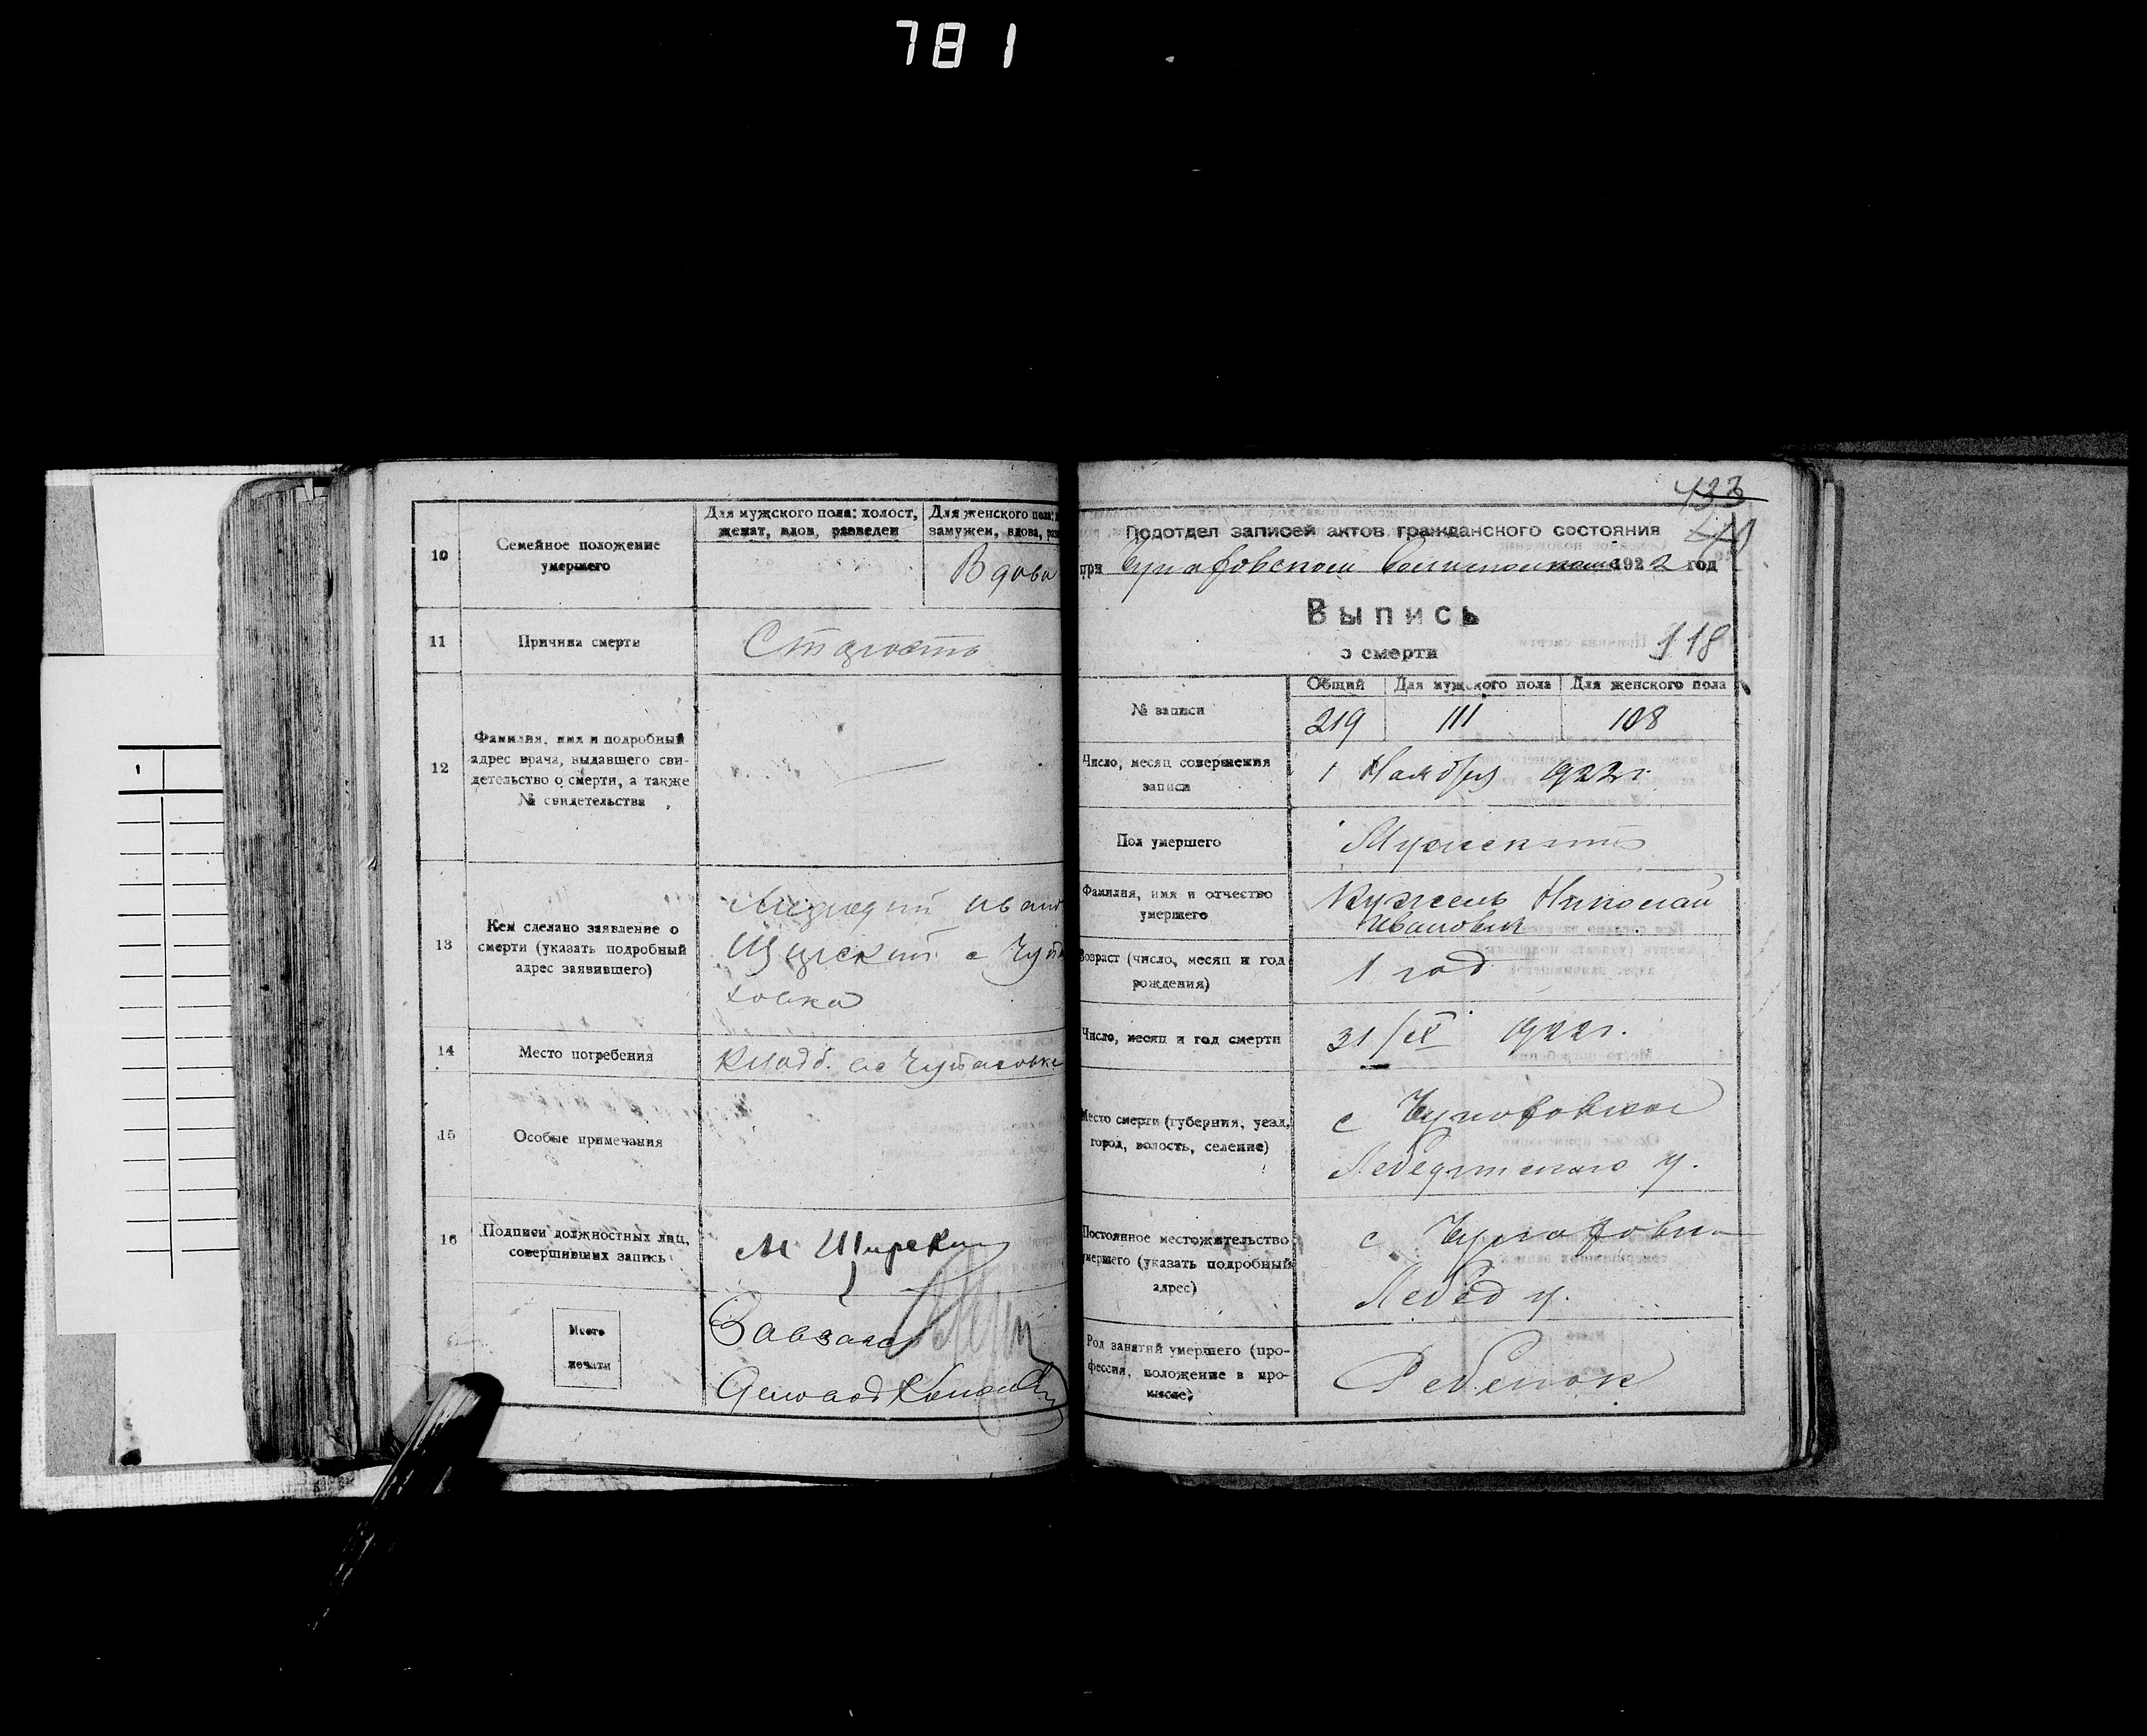 781
10
Семейное положение
умершего
Для мужского пола: холост,
женат, вдов, разведен
Для женского пола:
замужем, вдова,
Вдова
11
Причина смерти
Старость
12
Фамилия, имя и подробный
адрес врача, выдавшего сви-
детельство о смерти, а также
№ свидетельства
13
Кем сделано заявление о
смерти (указать подробный
адрес заявившего)
14
Место погребения
Кладб.
15
Особые примечания
16
Подписи должностных лиц,
совершивших запись
М
Завзагс
Место
печати
1
433
Подотдел записей актов гражданского состояния
при 1922 год
Выпись
о смерти
118
№ записи
Общий
Для мужского пола
Для женского пола
219
111
108
Число, месяц совершения
записи
1 Ноября 1922 г.
Пол умершего
Мужский
Фамилия, имя и отчество
умершего
Кужель Николай
Иванович
Возраст (число, месяц и год
рождения)
1 год
Число, месяц и год смерти
31/ 1922 г.
Место смерти (губерния, уезд,
город, волость, селение)
с
Лебединского у.
Постоянное местожительство
умершего (указать подробный
адрес)
с
Лебед у.
Род занятий умершего (про-
фессия, положение в про-
мысле)
Ребенок